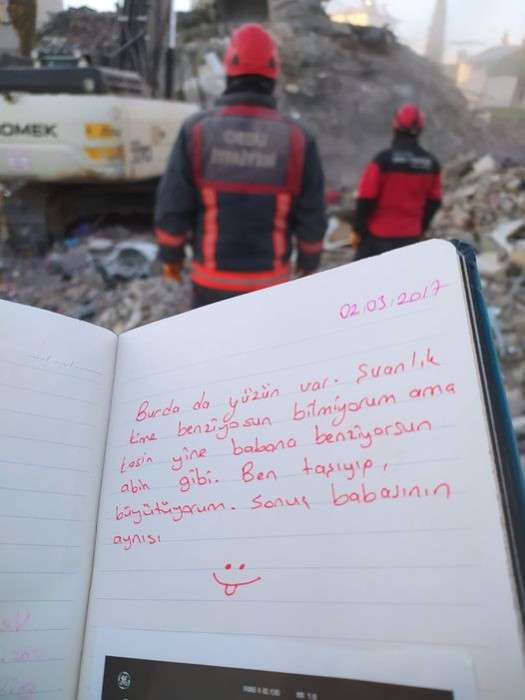 OMEK
ORDU
İTFAİYESİ
02.03.2017
Burda da yüzün var. Şuanlık
kime benziyosun bilmiyorum ama
kesin yine babana benziyorsun
abin gibi. Ben taşıyıp,
büyütüyorum. Sonuç babasının
aynısı